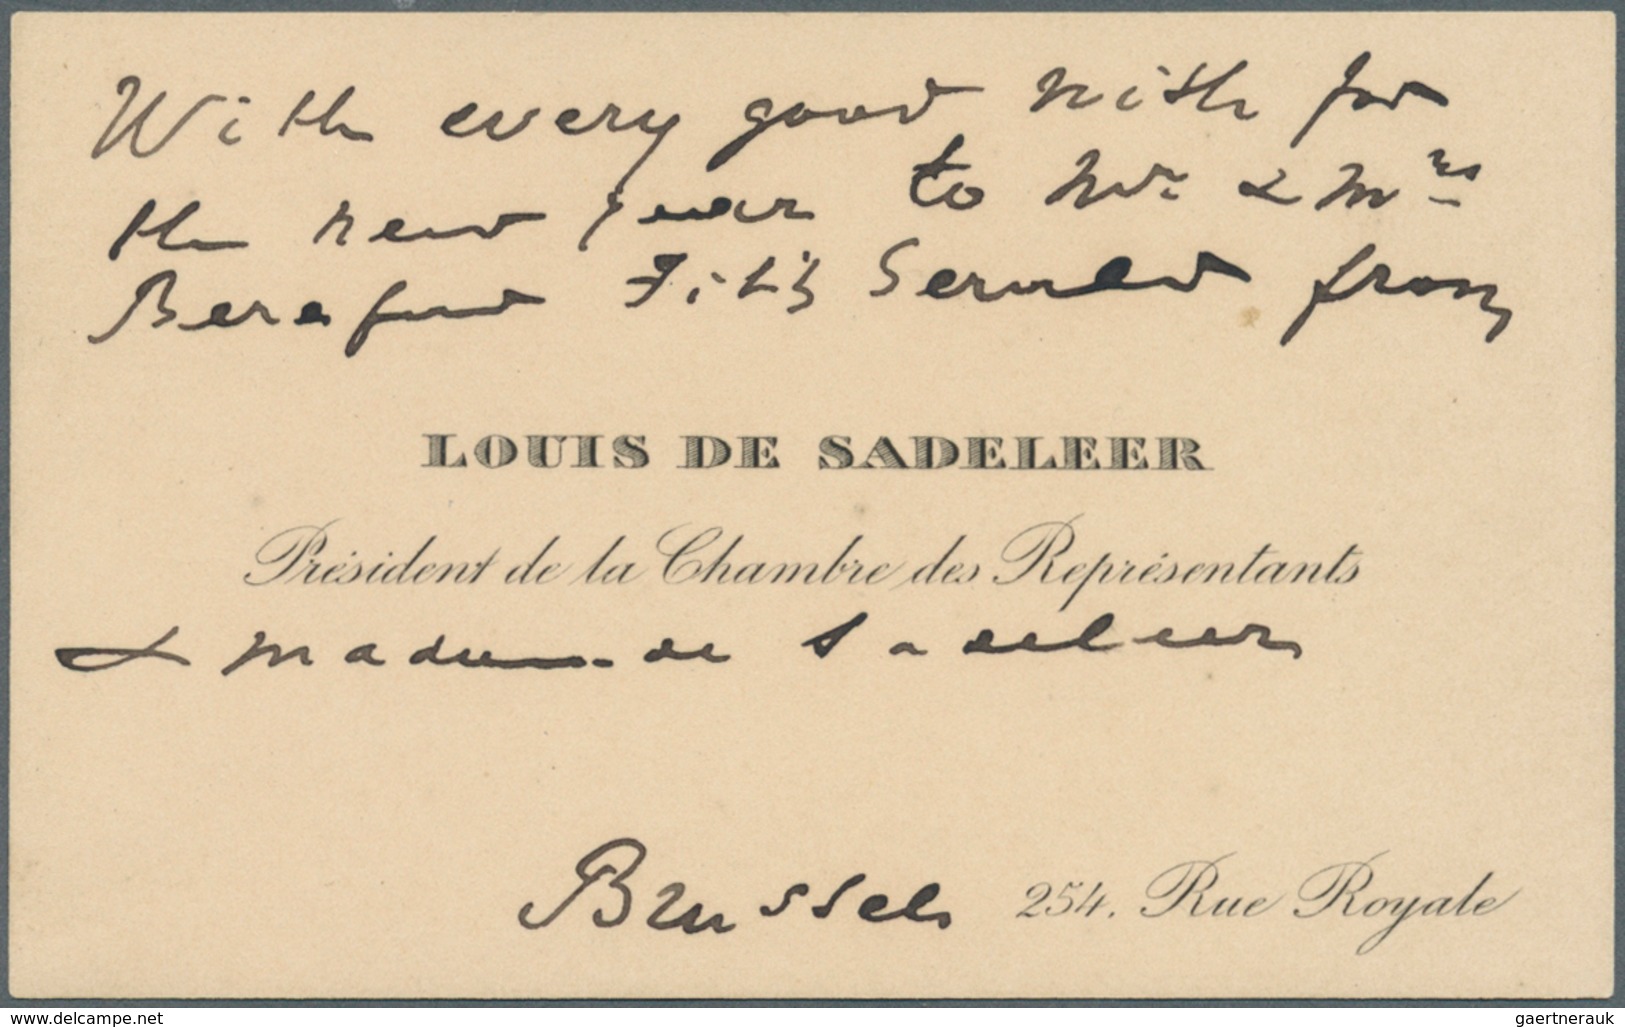 With every good wish for
the new year to Mr & Mrs
Beresford Fitz Gerald from
LOUIS DE SADELEER
Président de la Chambre des Représentants
& madame de Sadeleer
Brussels 254. Rue Royale
www.delcampe.net
gaertnerauk